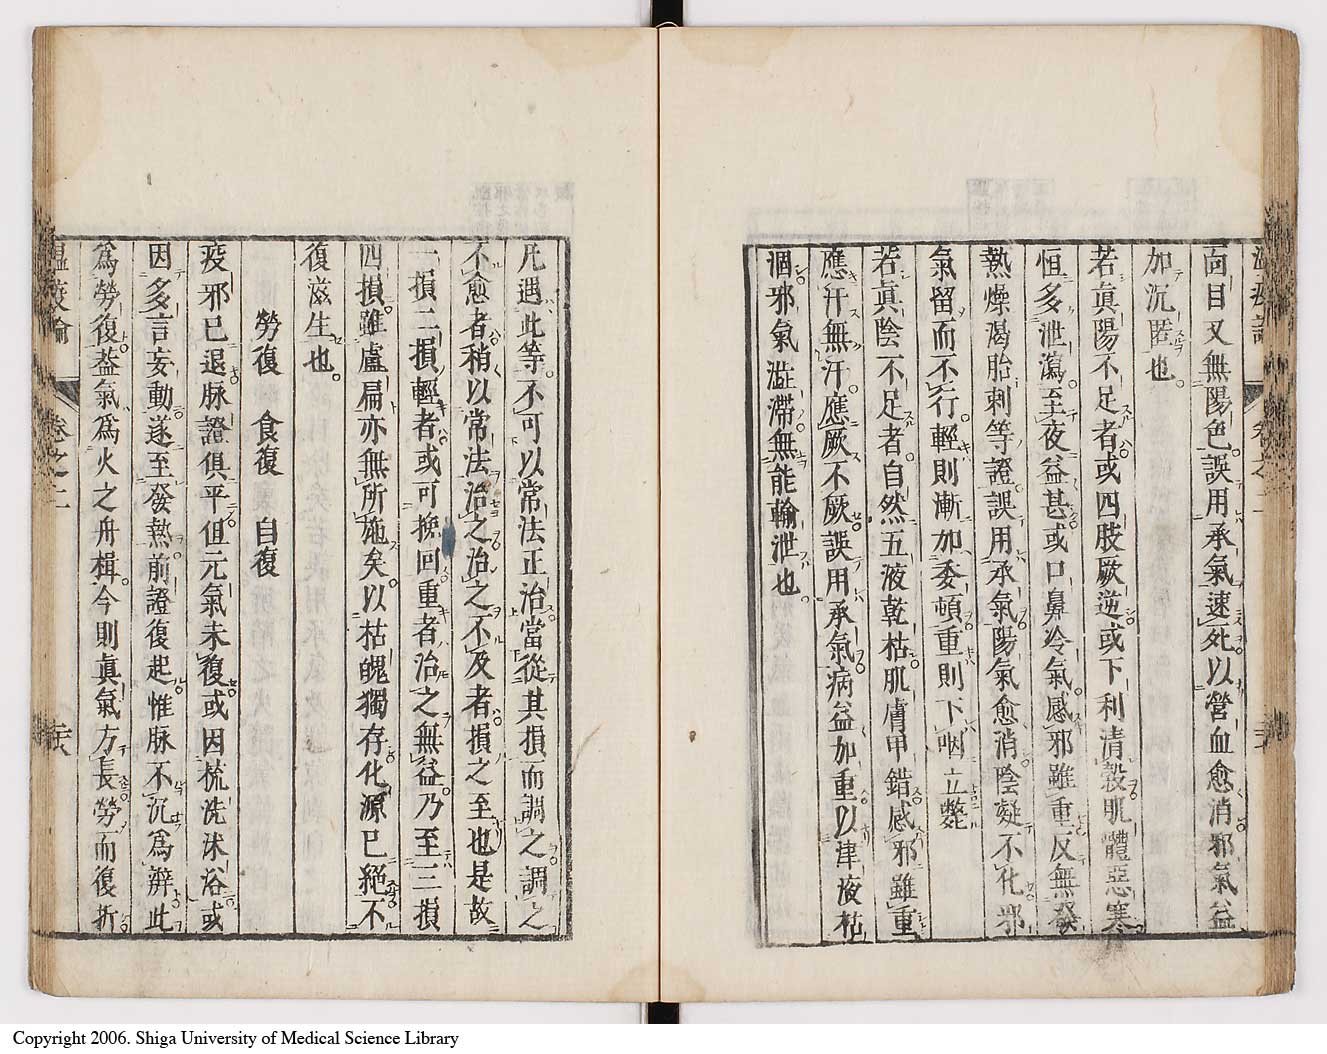 面目又無陽色。誤用承氣速死以營血愈消邪氣益
加沉匿也。
若眞陽不足者或四肢厥逆或下利清穀肌體惡寒
恒多泄瀉至夜益甚或口鼻冷氣。感邪雖重反無發
熱燥渴胎刺等證誤用承氣陽氣愈消陰凝不化邪
氣留而不行。輕則漸加委頓重則下咽立斃
若眞陰不足者自然五液乾枯肌膚甲錯感邪雖重
應汗無汗應厥不厥誤用承氣病益加重以津液枯
涸邪氣澁滯無能輸泄也。
凡遇此等不可以常法正治當從其損而調之調之
不愈者稍以常法治之治之不及者損之至也是故
一損二損輕者或可挽回重者治之無益乃至三損
四損雖盧扁亦無所施矣。以枯魄獨存化源已絕不
復滋生也。
勞復 食復 自復
疫邪已退脉證俱平但元氣未復或因梳洗沐浴或
因多言妄動遂至發熱前證復起惟脉不沉爲辨此
爲勞復葢氣爲火之舟楫。今則眞氣方長勞而復折
溫疫論 卷之二